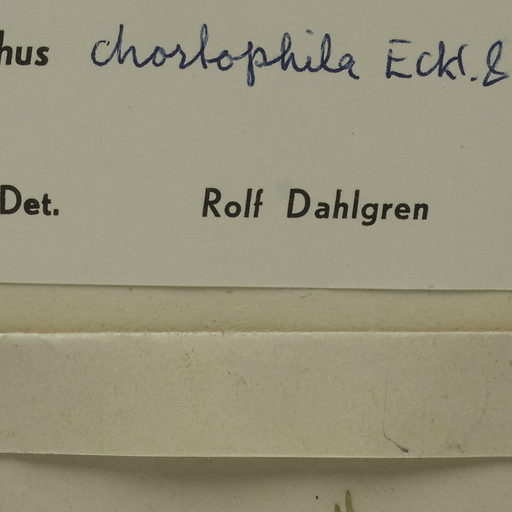 hus chortophila Eckl. &
Det. Rolf Dahlgren